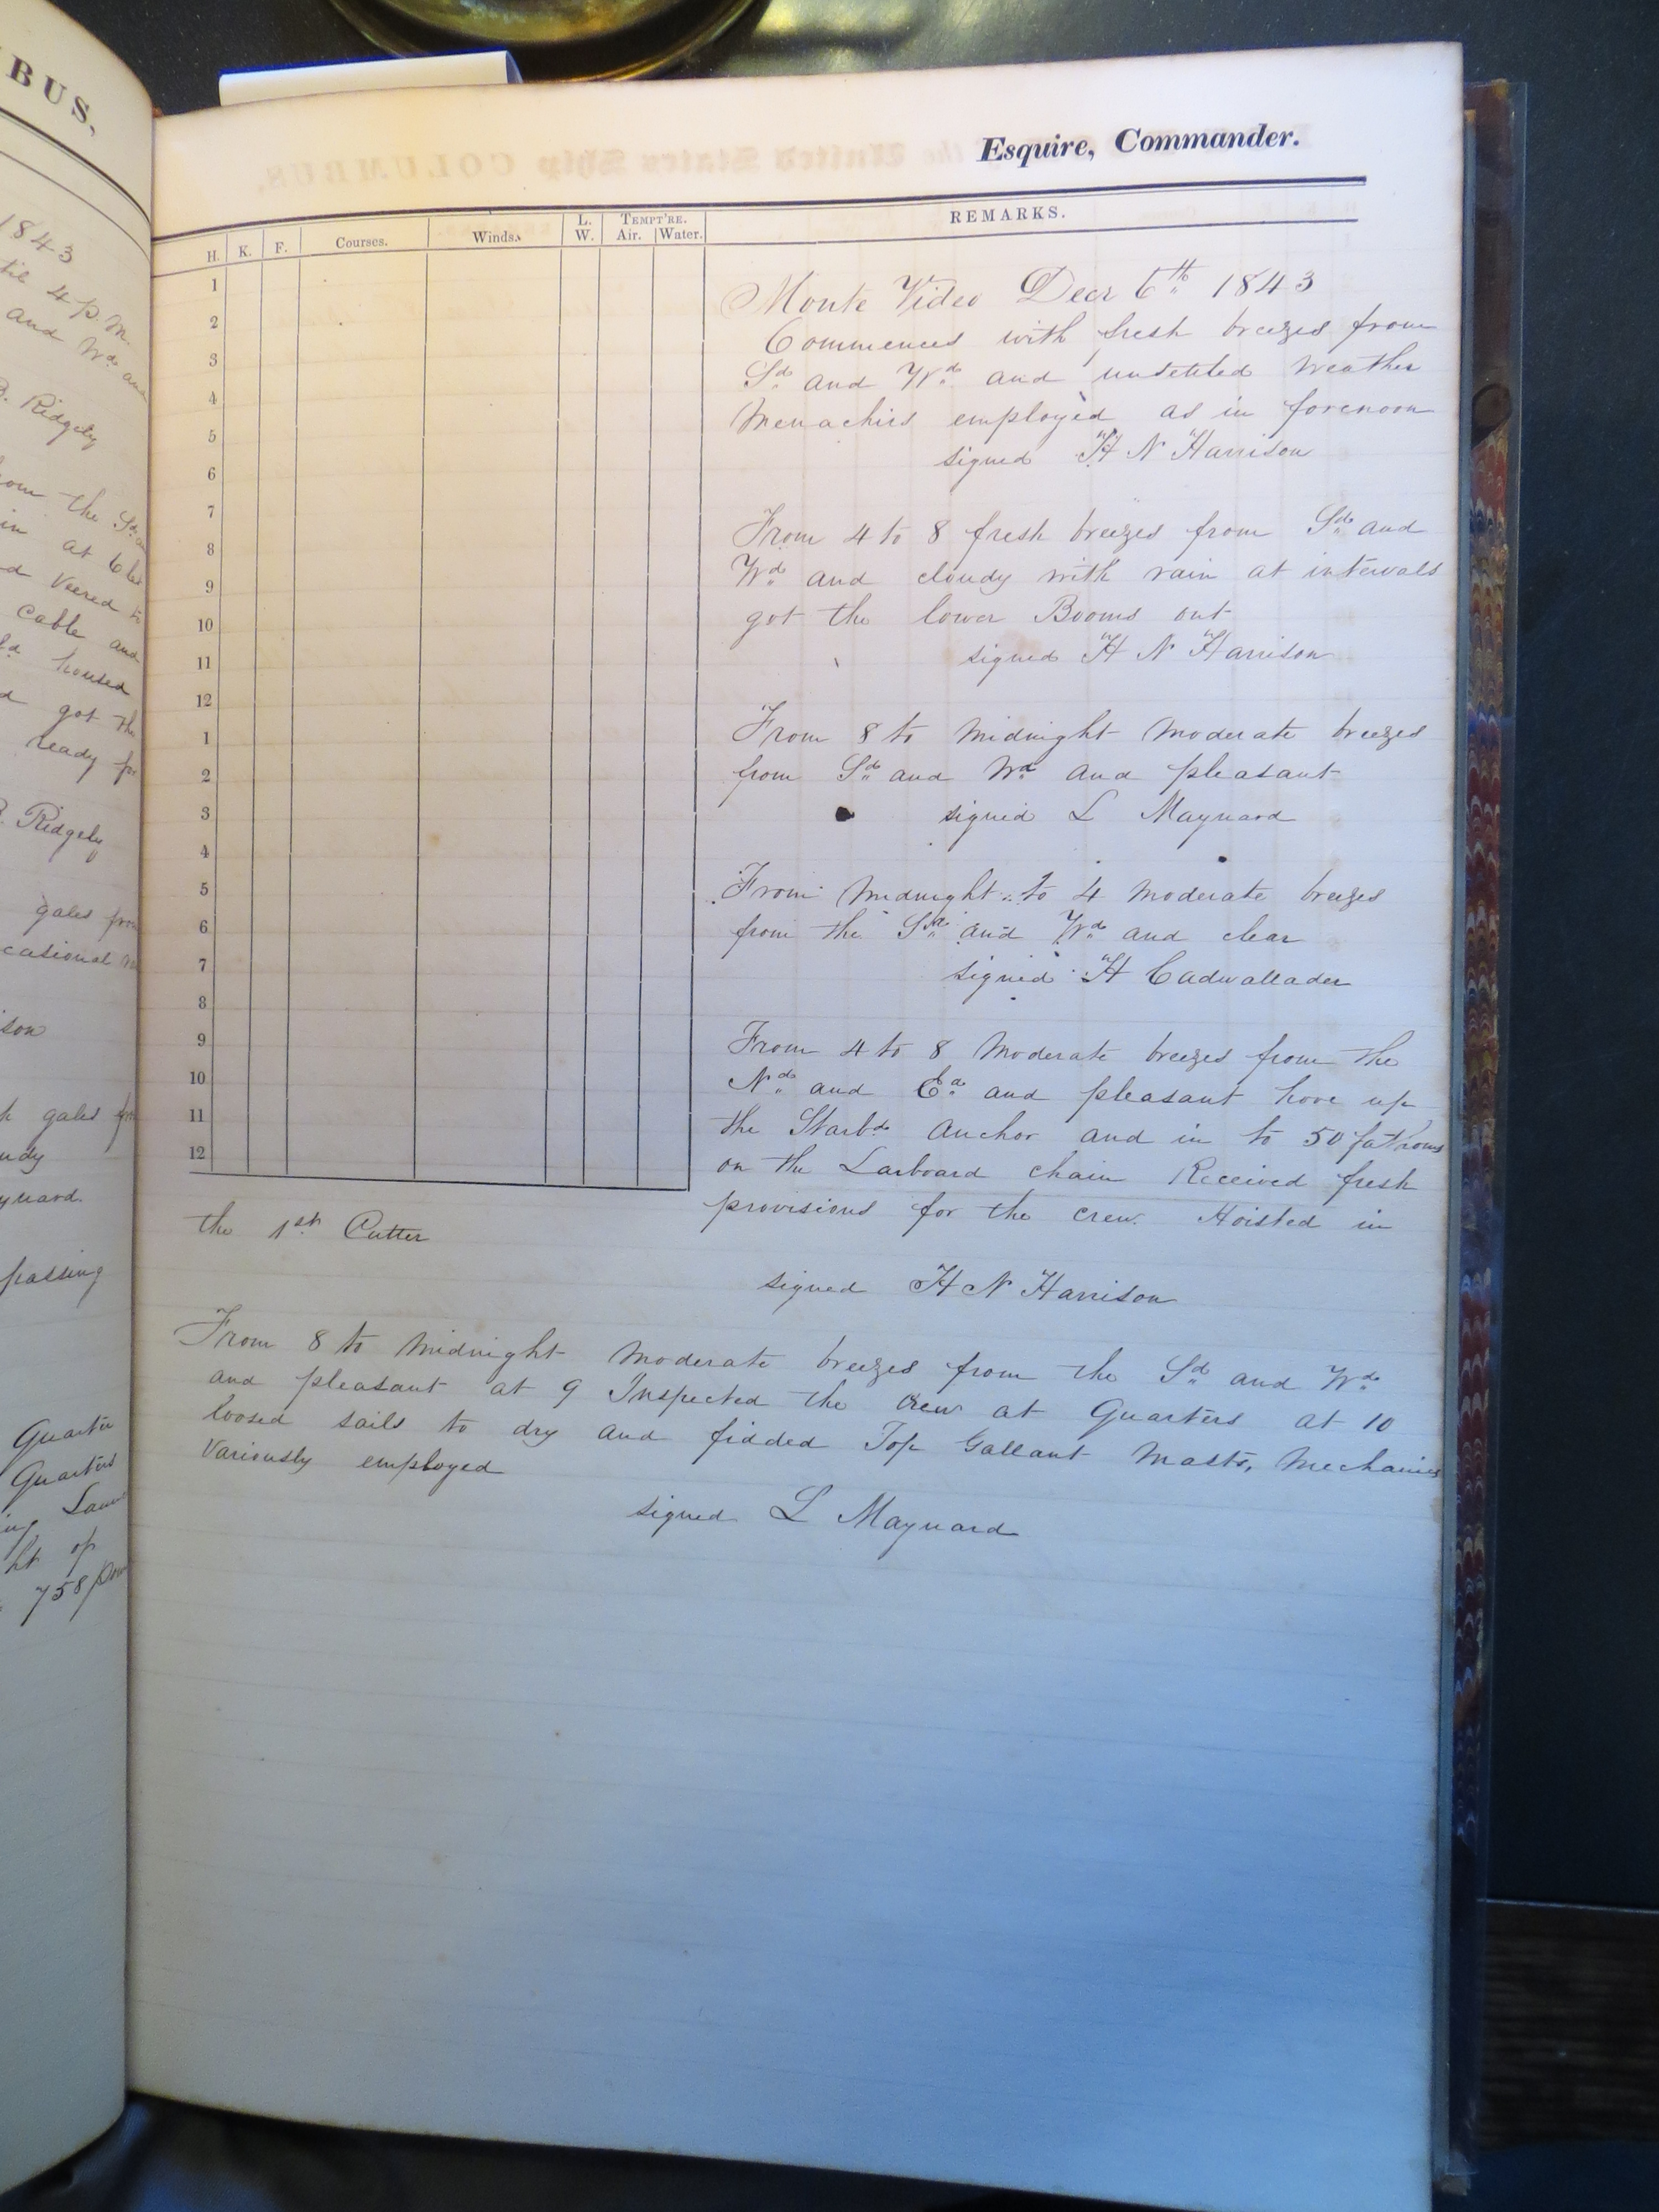 BUS,
1843
til 4 P.M.
and Wd and
B. Ridgely
from the Sd
in at 6
Veered to
cable and
housed
got the
ready for
B. Ridgely
gales from
casional
son
gales
udy
ynard.
passing
Quarter
Quarters
ht of
758
Esquire, Commander.
H. K. F. Courses. Winds. L. W. TEMPT'RE. Air. Water. REMARKS.
1
2
3
4
5
6
7
8
9
10
11
12
1
2
3
4
5
6
7
8
9
10
11
12
Monte Video Decr 6th 1843
Commences with fresh breezes from
Sd and Wd and unsettled weather
Menachics employed as in forenoon
signed H N Harrison
From 4 to 8 fresh breezes from Sd and
Wd and cloudy with rain at intervals
got the lower Booms out
signed H N Harrison
From 8 to midnight moderate breezes
from Sd and Wd and pleasant
signed L Maynard
From midnight to 4 moderate breezes
from the Sd and Wd and clear
signed H Cadwallader
From 4 to 8 moderate breezes from the
Nd and Ed and pleasant hove up
the Starbd Anchor and in to 50 fathoms
on the Larboard chain Received fresh
provisions for the crew. Hoisted in
the 1st Cutter
signed H N Harrison
From 8 to midnight moderate breezes from the Sd and Wd
and pleasant at 9 Inspected the crew at Quarters at 10
loosed sails to dry and fidded Top Gallant Masts, Mechanics
Variously employed
signed L Maynard